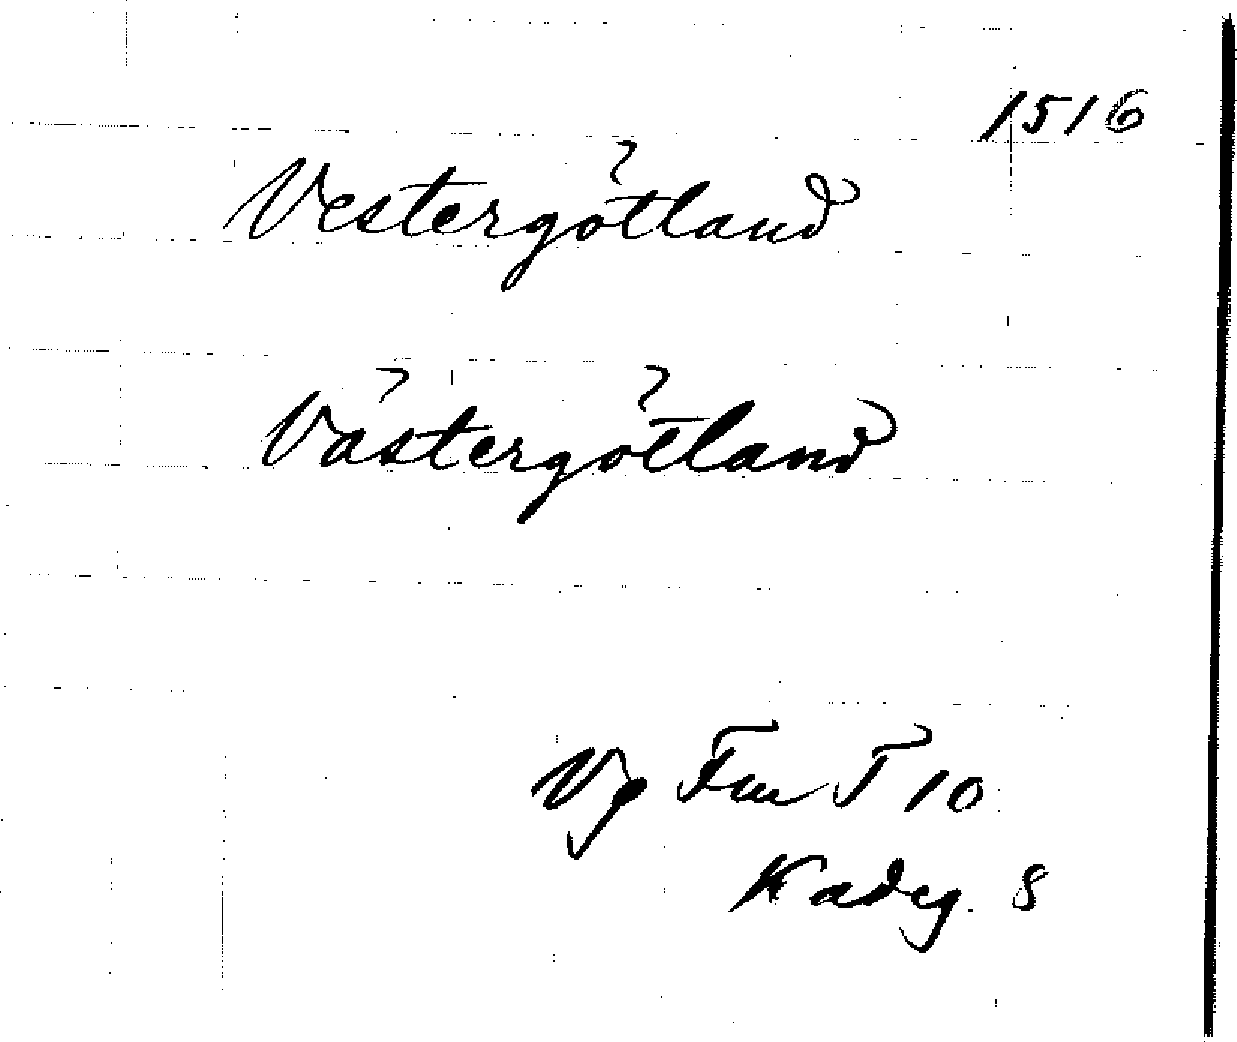 1516
Vestergötland
Västergötland
Vg Fm T 10
Kadeg. 8